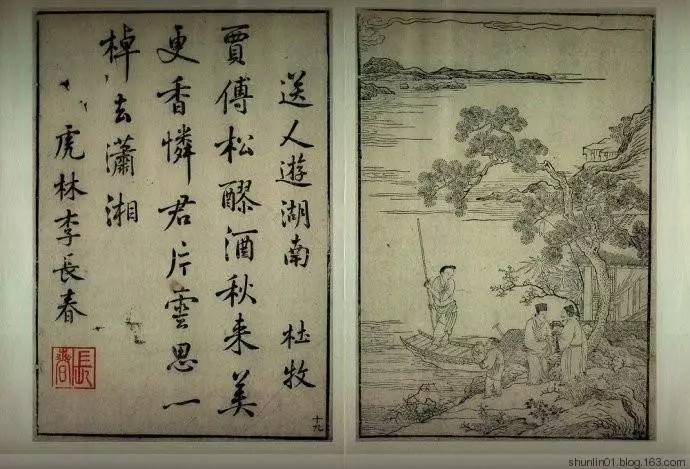 送人遊湖南 杜牧
賈傅松醪酒秋来美
更香憐君片雲思一
棹去瀟湘
虎林李長春
長春
十九
shunlin01.blog.163.com